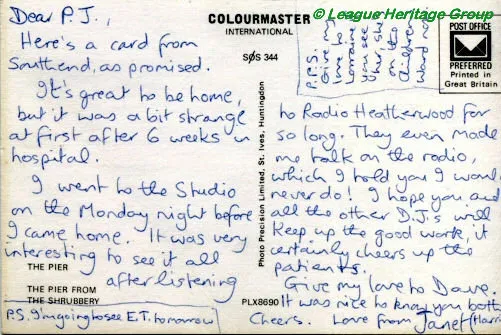 © League Heritage Group
COLOURMASTER
INTERNATIONAL
SØS 344
POST OFFICE
PREFERRED
Printed in
Great Britain
Dear P.J.,
Here's a card from
Southend, as promised.
It's great to be home,
but it was a bit strange
at first after 6 weeks in
hospital.
I went to the Studio
on the Monday night before
I came home. It was very
interesting to see it all
after listening
to Radio Heatherwood for
so long. They even made
me talk on the radio,
which I told you I would
never do! I hope you and
all the other D.J.'s will
keep up the good work, it
certainly cheers up the
patients.
Give my love to Dave.
It was nice to know you both
Cheers. Love from Janet
P.S. I'm going to see E.T. tomorrow
P.P.S.
Give my
love to
Lorraine
you see
her
on the
Children's
Ward
THE PIER
THE PIER FROM
THE SHRUBBERY
PLX8690
Photo Precision Limited, St. Ives, Huntingdon